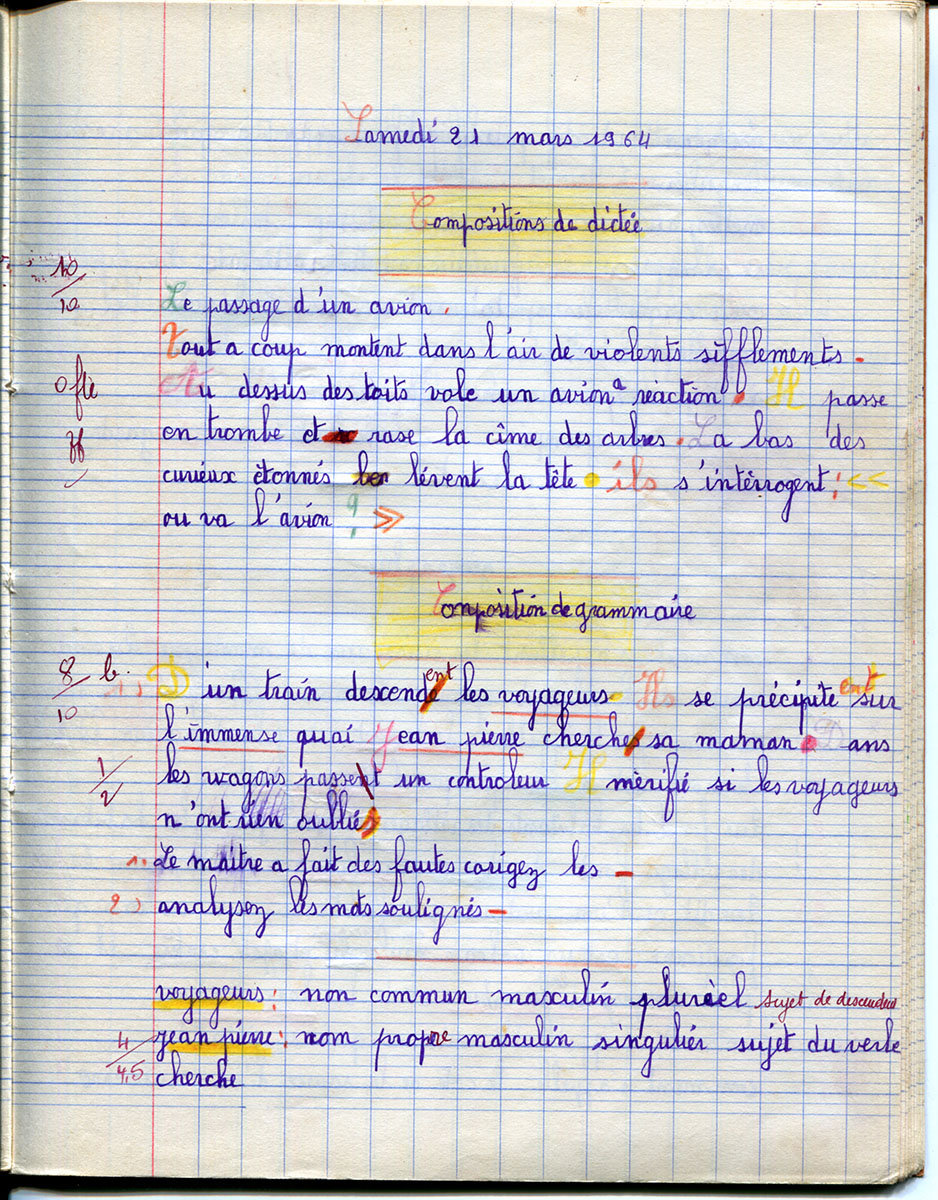 Samedi 21 mars 1964
Compositions de dictée
10
10
Le passage d'un avion.
Tout a coup montent dans l'air de violents sifflements.
0 fte
Au dessus des toits vole un avion a réaction. Il passe
en trombe et rase la cîme des arbres. La bas des
curiéux ètonnés lévent la tête. ils s'intèrrogent: <<
ou va l'avion ? >>
Composition de grammaire
8 b.
10
1). D'un train descendent les voyageurs. Ils se précipitent sur
l'immense quai Jean pierre cherche sa maman. Dans
1
2
les wagons passent un controleur Il mèrifié si les voyageurs
n'ont rien oubliés
1. Le maitre a fait des fautes corigez les -
2) analysez les mots soulignés -
voyageurs: non commun masculin plurièl sujet de descendent
4
4,5
jean pierre: nom propre masculin singuliér sujet du verbe
cherche